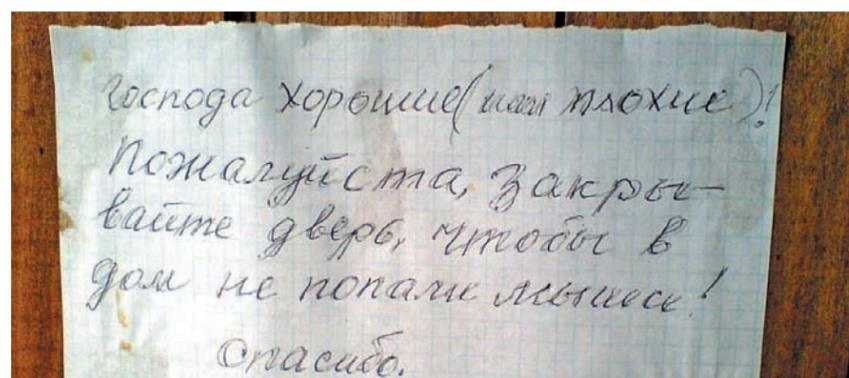 Господа хорошие (или плохие)!
Пожалуйста, закры-
вайте дверь, чтобы в
дом не попали мыши!
Спасибо.